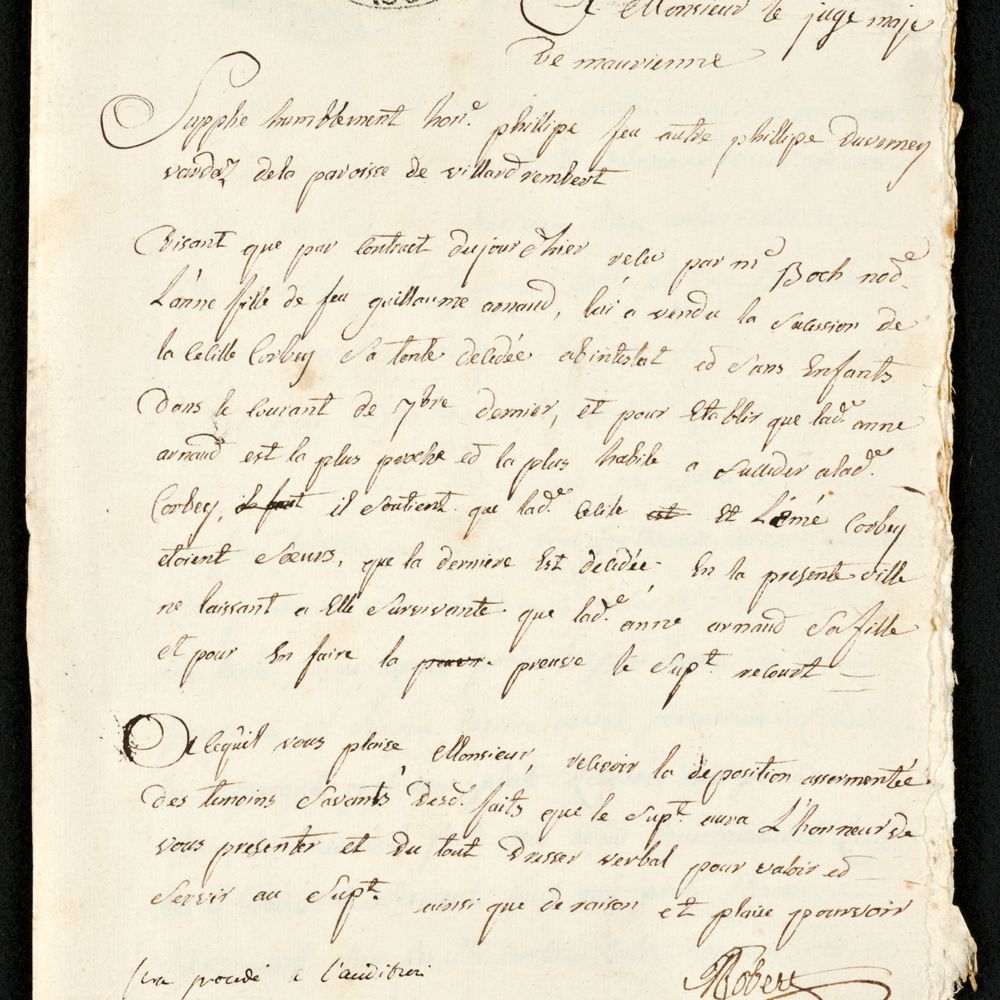 A Monsieur le juge maje
De maurienne
Supplie humblement hon.e phillipe feu autre phillipe Duverney
vardaz dela paroisse de villard rembert
Disant que par Contract dujour d'hier recu par m.e Boch nod.e
L'anne fille de feu guillaume arnaud, lui a vendu la sucession de
la Cecille Corbey Sa tente decedée abintestat ed Sans Enfants
Dans le Courant de 7bre dernier, et pour Etablir que lad.e anne
arnaud est la plus proche ed la plus habile a succeder alad.e
Corbey, il faut il soutient que lad.e Cecile est Et L'émé Corbey
etoient Sœurs, que la derniere Est decedée En la presente ville
ne laissant a Elle Survivante que lad.e anne arnaud Sa fille
et pour En faire la preuve le Sup.t recourt
A Cequil vous plaise, Monsieur, recevoir la deposition assermentée
Des temoins Savants Desd. faits que le Sup.t aura L'honneur de
vous presenter et Du tout Dresser verbal pour valoir ed
Servir au Sup.t ainsi que de raison et plaise pourvoir
sera procedé a l'audition
Robert